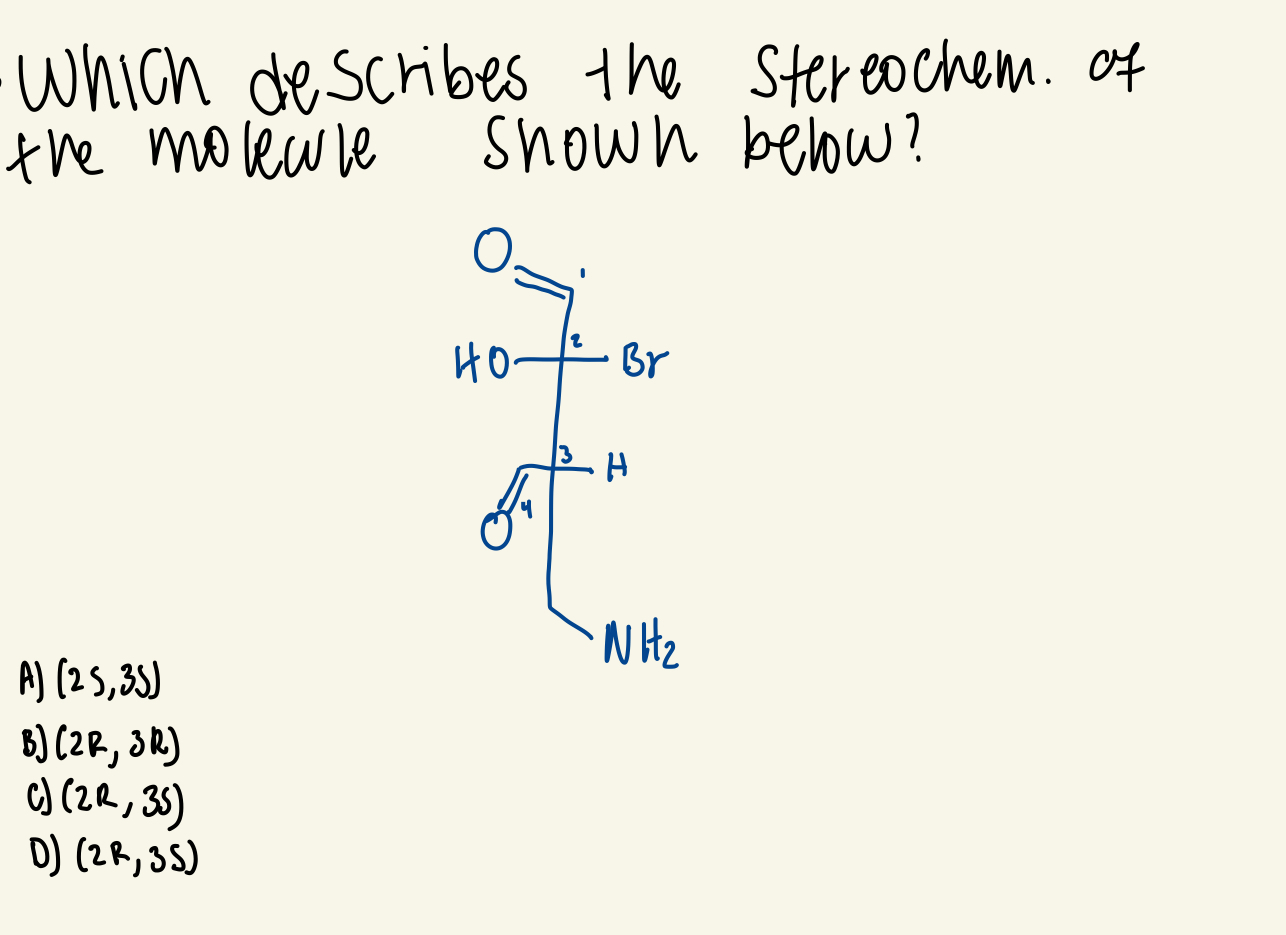 Which describes the stereochem. of
the molecule shown below?
O
1
2
HO Br
3
H
4
O
NH2
A) (2S,3S)
B) (2R, 3R)
C) (2R, 3S)
D) (2R, 3S)